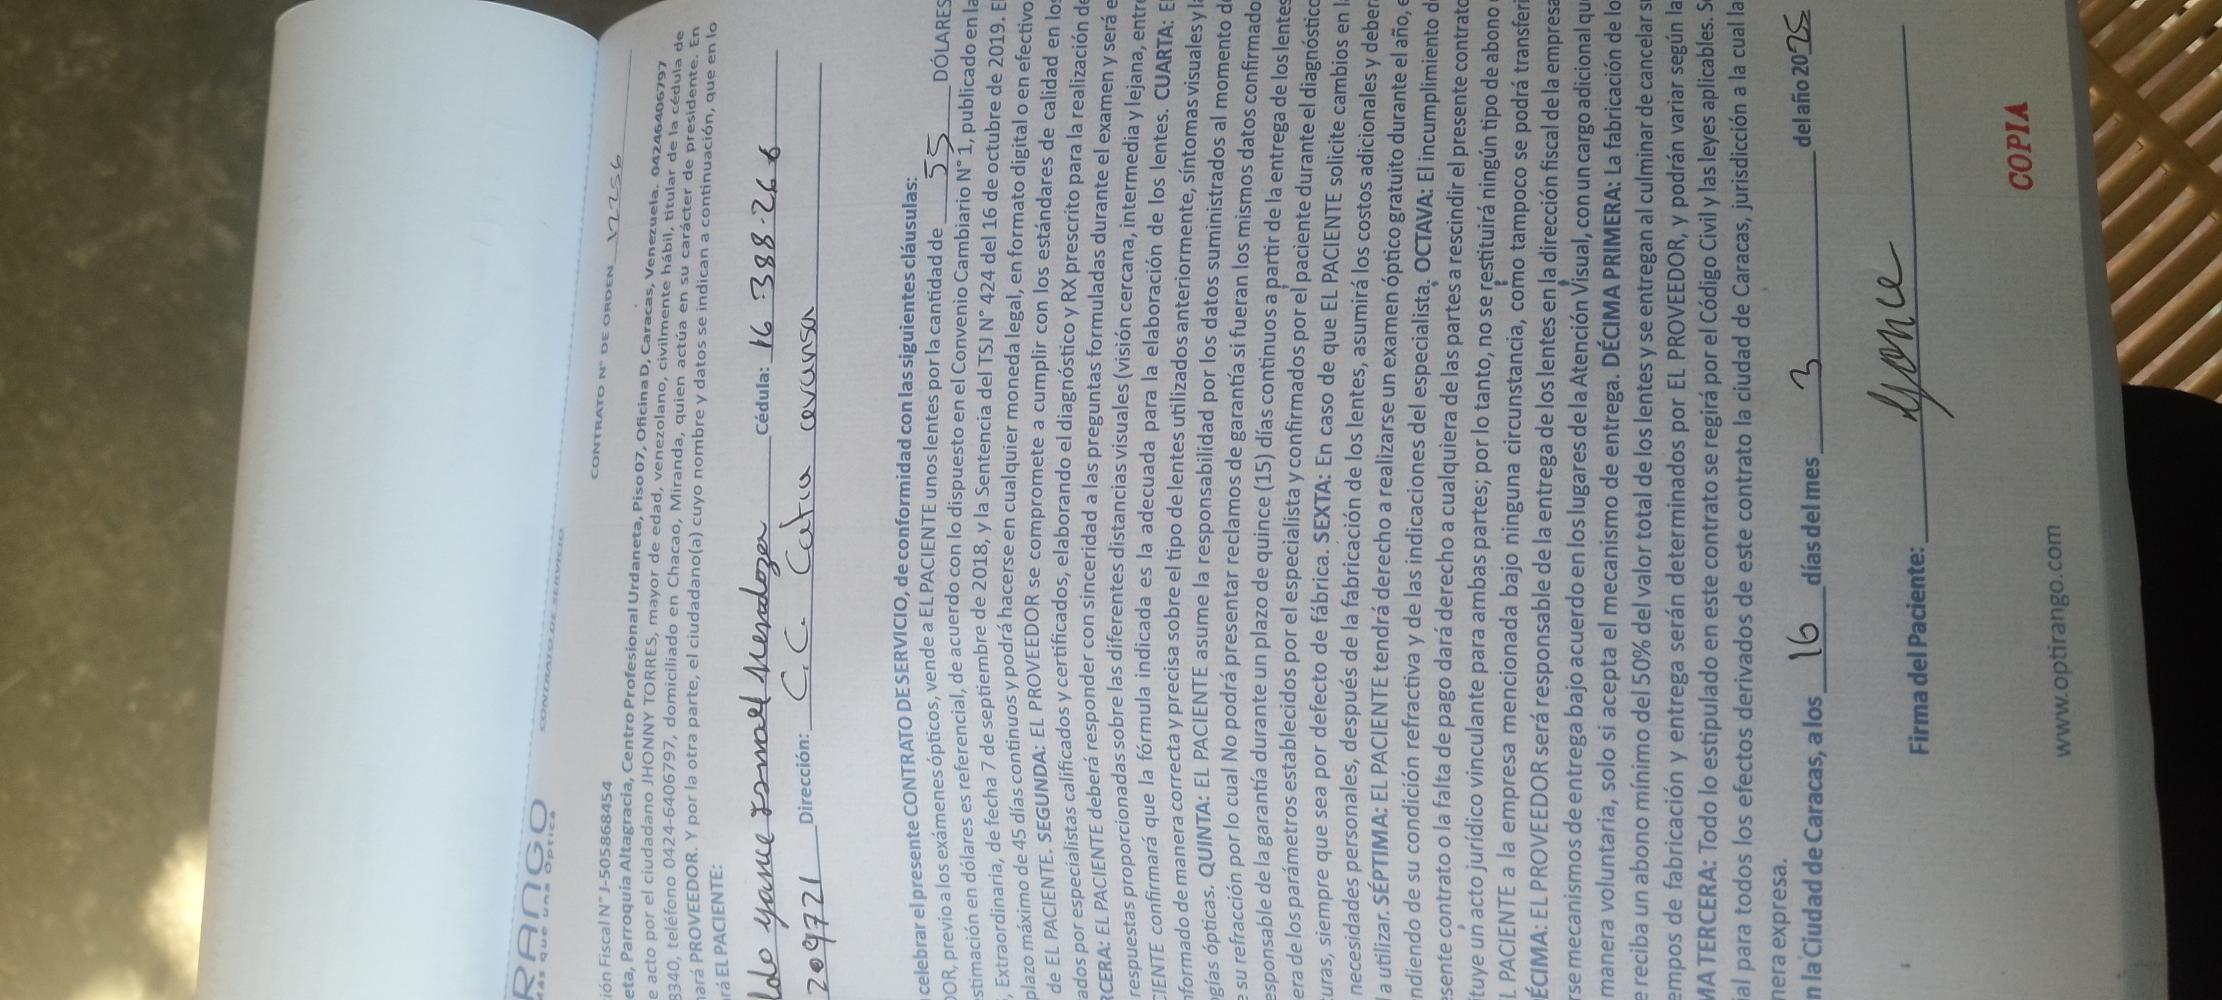 RAnGO
MÁS que una Óptica
CONTRATO DE SERVICIO
CONTRATO N° DE ORDEN 12256
ión Fiscal N° J-505868454
eta, Parroquia Altagracia, Centro Profesional Urdaneta, Piso 07, Oficina D, Caracas, Venezuela. 04246406797
e acto por el ciudadano JHONNY TORRES, mayor de edad, venezolano, civilmente hábil, titular de la cédula de
8340, teléfono 0424-6406797, domiciliado en Chacao, Miranda, quien actúa en su carácter de presidente. En
nará PROVEEDOR. Y por la otra parte, el ciudadano(a) cuyo nombre y datos se indican a continuación, que en lo
rá EL PACIENTE:
Cédula: 16.388.266
209721 Dirección: C.C. Catia
celebrar el presente CONTRATO DE SERVICIO, de conformidad con las siguientes cláusulas:
DOR, previo a los exámenes ópticos, vende a El PACIENTE unos lentes por la cantidad de 55 DÓLARES
stimación en dólares es referencial, de acuerdo con lo dispuesto en el Convenio Cambiario N° 1, publicado en la
, Extraordinaria, de fecha 7 de septiembre de 2018, y la Sentencia del TSJ N° 424 del 16 de octubre de 2019. E
plazo máximo de 45 días continuos y podrá hacerse en cualquier moneda legal, en formato digital o en efectivo
de EL PACIENTE. SEGUNDA: EL PROVEEDOR se compromete a cumplir con los estándares de calidad en los
ados por especialistas calificados y certificados, elaborando el diagnóstico y RX prescrito para la realización de
RCERA: EL PACIENTE deberá responder con sinceridad a las preguntas formuladas durante el examen y será e
respuestas proporcionadas sobre las diferentes distancias visuales (visión cercana, intermedia y lejana, entre
CIENTE confirmará que la fórmula indicada es la adecuada para la elaboración de los lentes. CUARTA: E
nformado de manera correcta y precisa sobre el tipo de lentes utilizados anteriormente, síntomas visuales y la
ogías ópticas. QUINTA: EL PACIENTE asume la responsabilidad por los datos suministrados al momento de
e su refracción por lo cual No podrá presentar reclamos de garantía si fueran los mismos datos confirmado
esponsable de la garantía durante un plazo de quince (15) días continuos a partir de la entrega de los lentes
era de los parámetros establecidos por el especialista y confirmados por el paciente durante el diagnóstico
uras, siempre que sea por defecto de fábrica. SEXTA: En caso de que EL PACIENTE solicite cambios en l
necesidades personales, después de la fabricación de los lentes, asumirá los costos adicionales y deber
a utilizar. SÉPTIMA: EL PACIENTE tendrá derecho a realizarse un examen óptico gratuito durante el año, e
ndiendo de su condición refractiva y de las indicaciones del especialista. OCTAVA: El incumplimiento d
esente contrato o la falta de pago dará derecho a cualquiera de las partes a rescindir el presente contrato
tuye un acto jurídico vinculante para ambas partes; por lo tanto, no se restituirá ningún tipo de abono
L PACIENTE a la empresa mencionada bajo ninguna circunstancia, como tampoco se podrá transferi
ÉCIMA: EL PROVEEDOR será responsable de la entrega de los lentes en la dirección fiscal de la empresa
rse mecanismos de entrega bajo acuerdo en los lugares de la Atención Visual, con un cargo adicional qu
manera voluntaria, solo si acepta el mecanismo de entrega. DÉCIMA PRIMERA: La fabricación de lo
e reciba un abono mínimo del 50% del valor total de los lentes y se entregan al culminar de cancelar s
empos de fabricación y entrega serán determinados por EL PROVEEDOR, y podrán variar según la
MA TERCERA: Todo lo estipulado en este contrato se regirá por el Código Civil y las leyes aplicables. S
ial para todos los efectos derivados de este contrato la ciudad de Caracas, jurisdicción a la cual la
nera expresa.
n la Ciudad de Caracas, a los 16 días del mes 3 del año 2025
Firma del Paciente:
COPIA
www.optirango.com